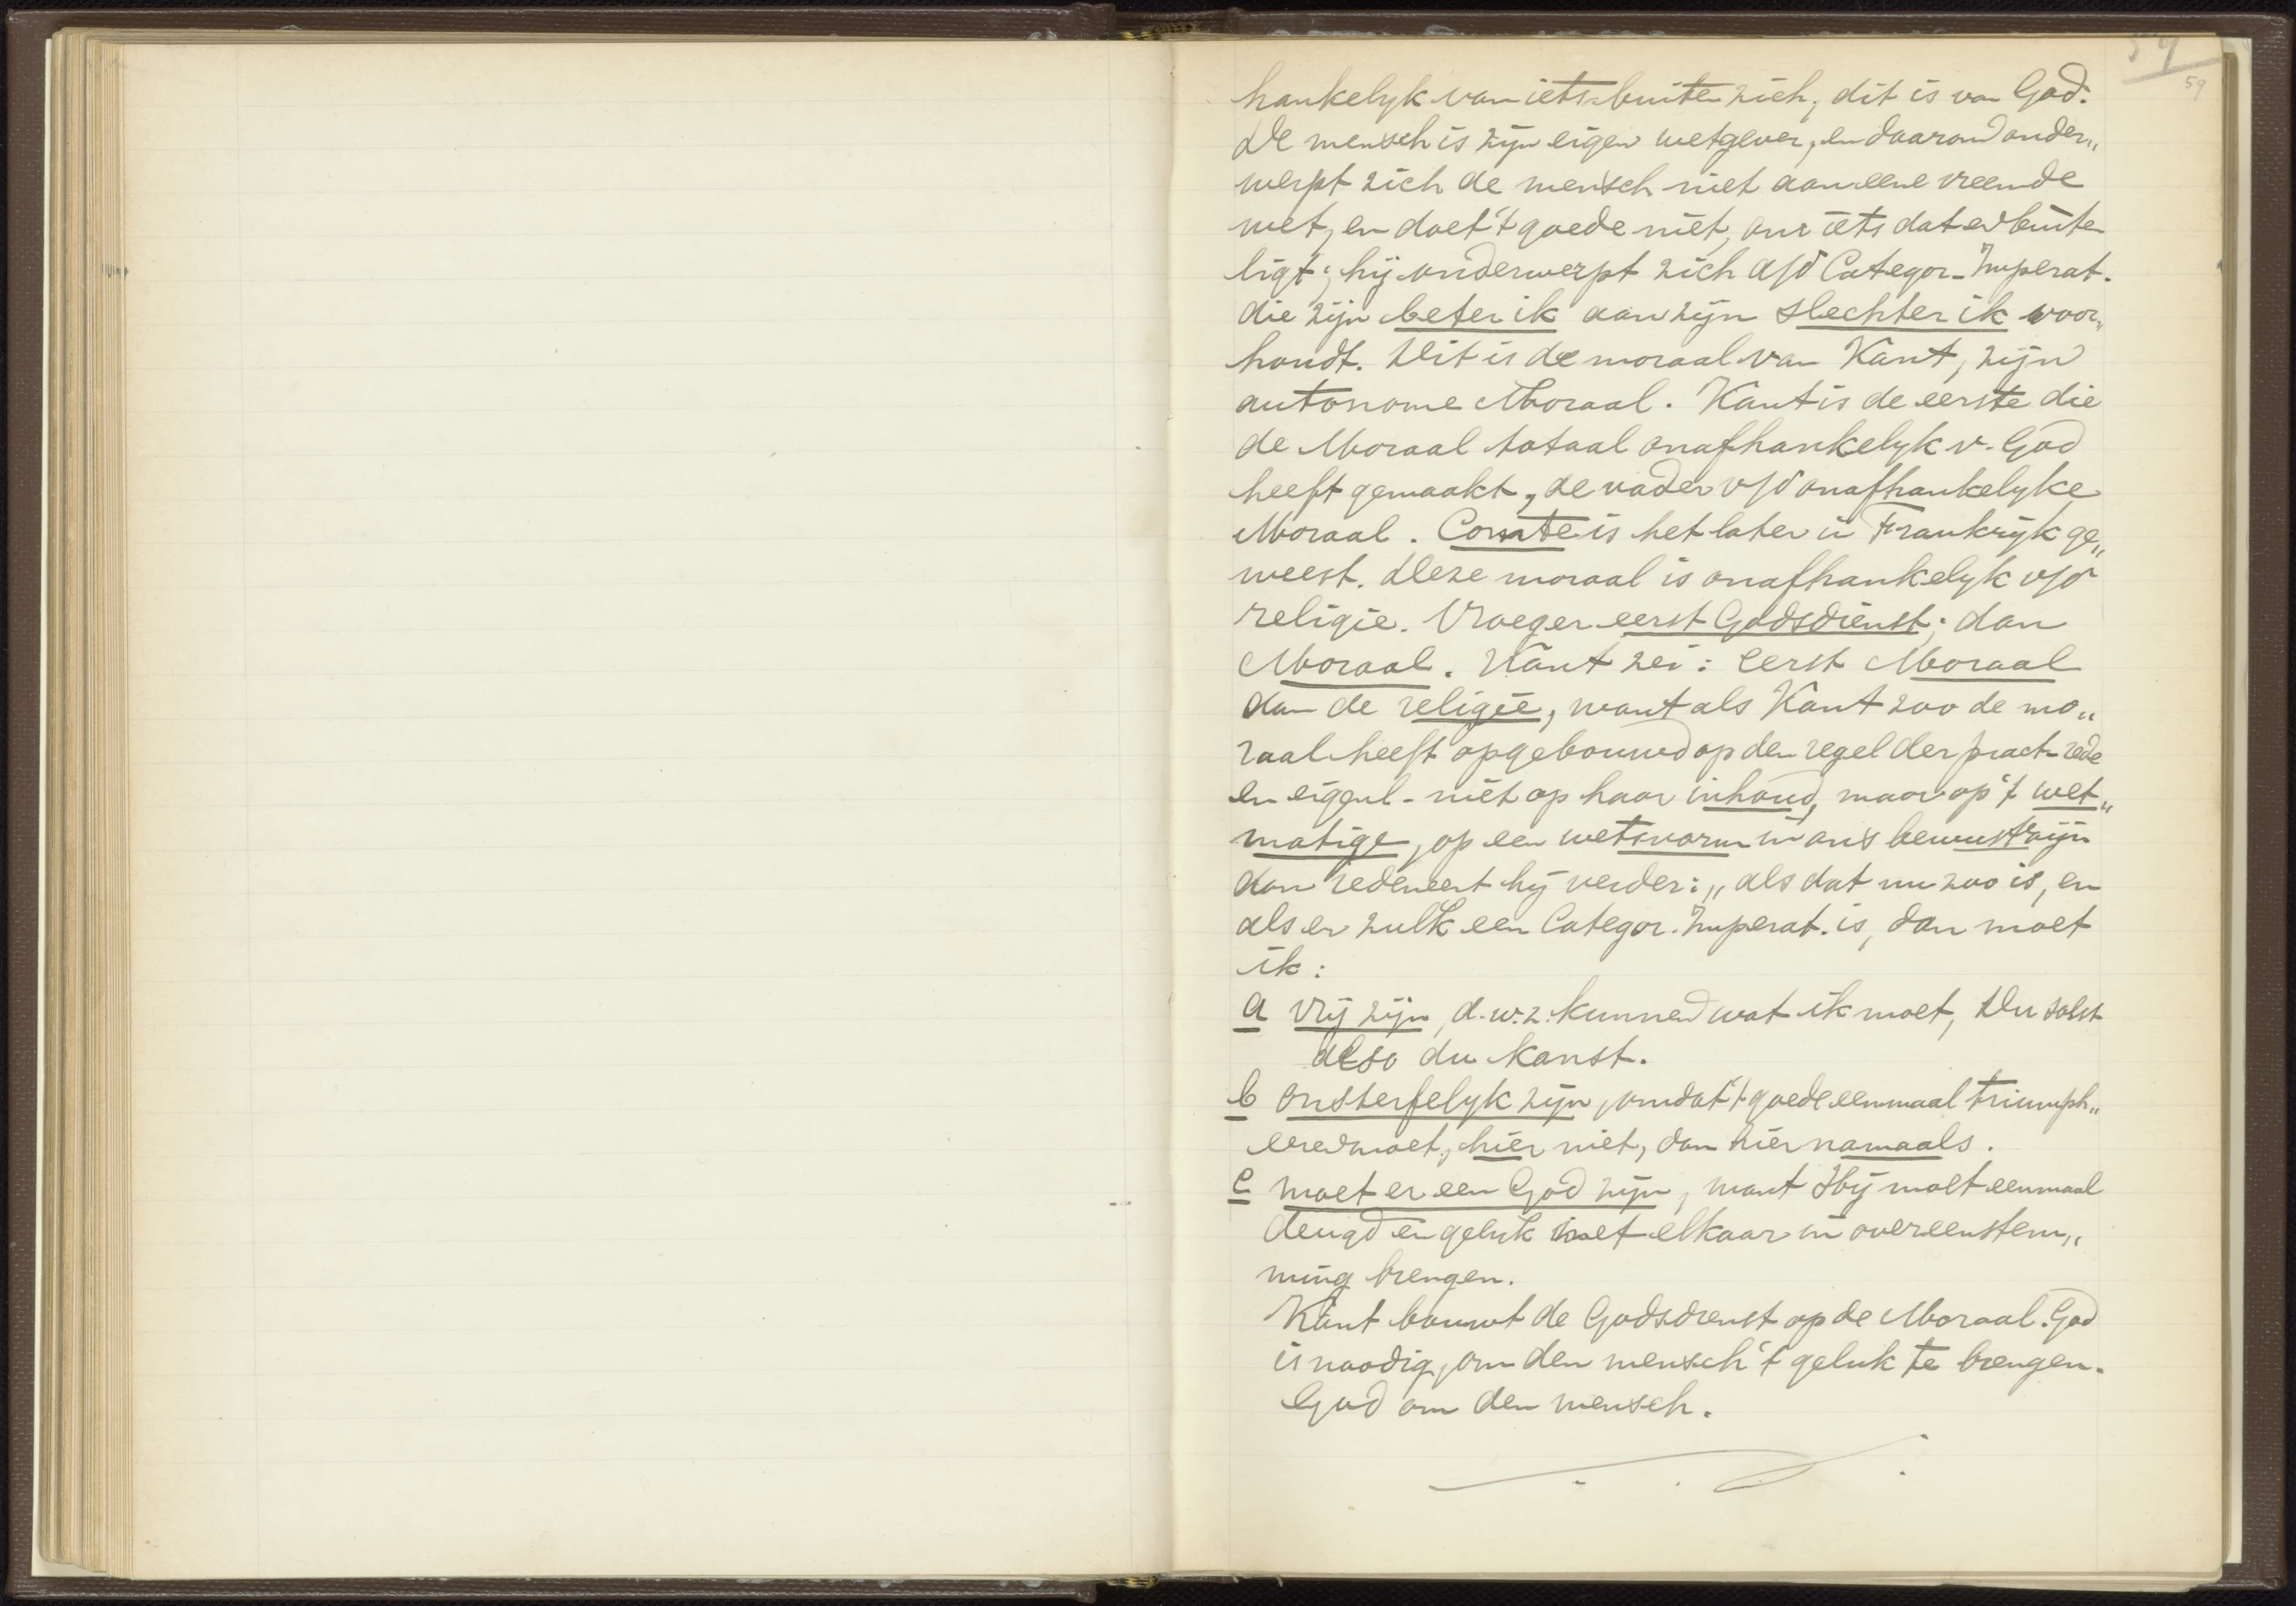 54
59
hankelyk van iets buiten zich, dit is van God.
De mensch is zijn eigen wetgever, en daarom onder„
werpt zich de mensch niet aan eene vreemde
wet, en doet 't goede niet, om iets dat er buiten
ligt; hij onderwerpt zich a/d Categor. Imperat.
die zijn beter ik aan zijn slechter ik voor„
houdt. Dit is de moraal van Kant, zijn
autonome Moraal. Kant is de eerste die
de Moraal totaal onafhankelyk v. God
heeft gemaakt, de vader v/d onafhankelyke
Moraal. Comte is het later in Frankrijk ge„
weest. Deze moraal is onafhankelyk v/d
religie. Vroeger eerst Godsdienst; dan
Moraal. Kant zei: eerst Moraal
dan de religie, want als Kant zoo de mo„
raal heeft opgebouwd op den regel der pract. rede
en eigenl. niet op haar inhoud, maar op 't wet„
matige, op een wetsvorm in ons bewustzijn
dan redeneert hij verder: „als dat nu zoo is, en
als er zulk een Categor. Imperat. is, dan moet
ik:
a vrij zijn, d.w.z. kunnen wat ik moet, Du solst
also du kanst.
b onsterfelyk zijn, omdat 't goede eenmaal triumph„
eren moet, hier niet, dan hiernamaals.
c moet er een God zijn, want Hij moet eenmaal
deugd en geluk met elkaar in overeenstem„
ming brengen.
Kant bouwt de Godsdienst op de Moraal. God
is noodig, om den mensch 't geluk te brengen.
God om den mensch.